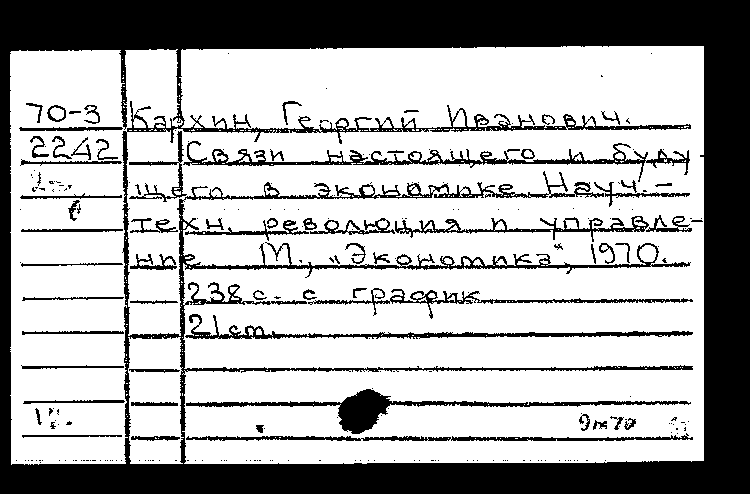 70-3 Кархин, Георгий Иванович.
2242 Связи настоящего и буду-
щего в экономике Науч.-
техн. революция и управле-
ние М., „Экономика“, 1970.
238 с. с график
21 cm.
9м70